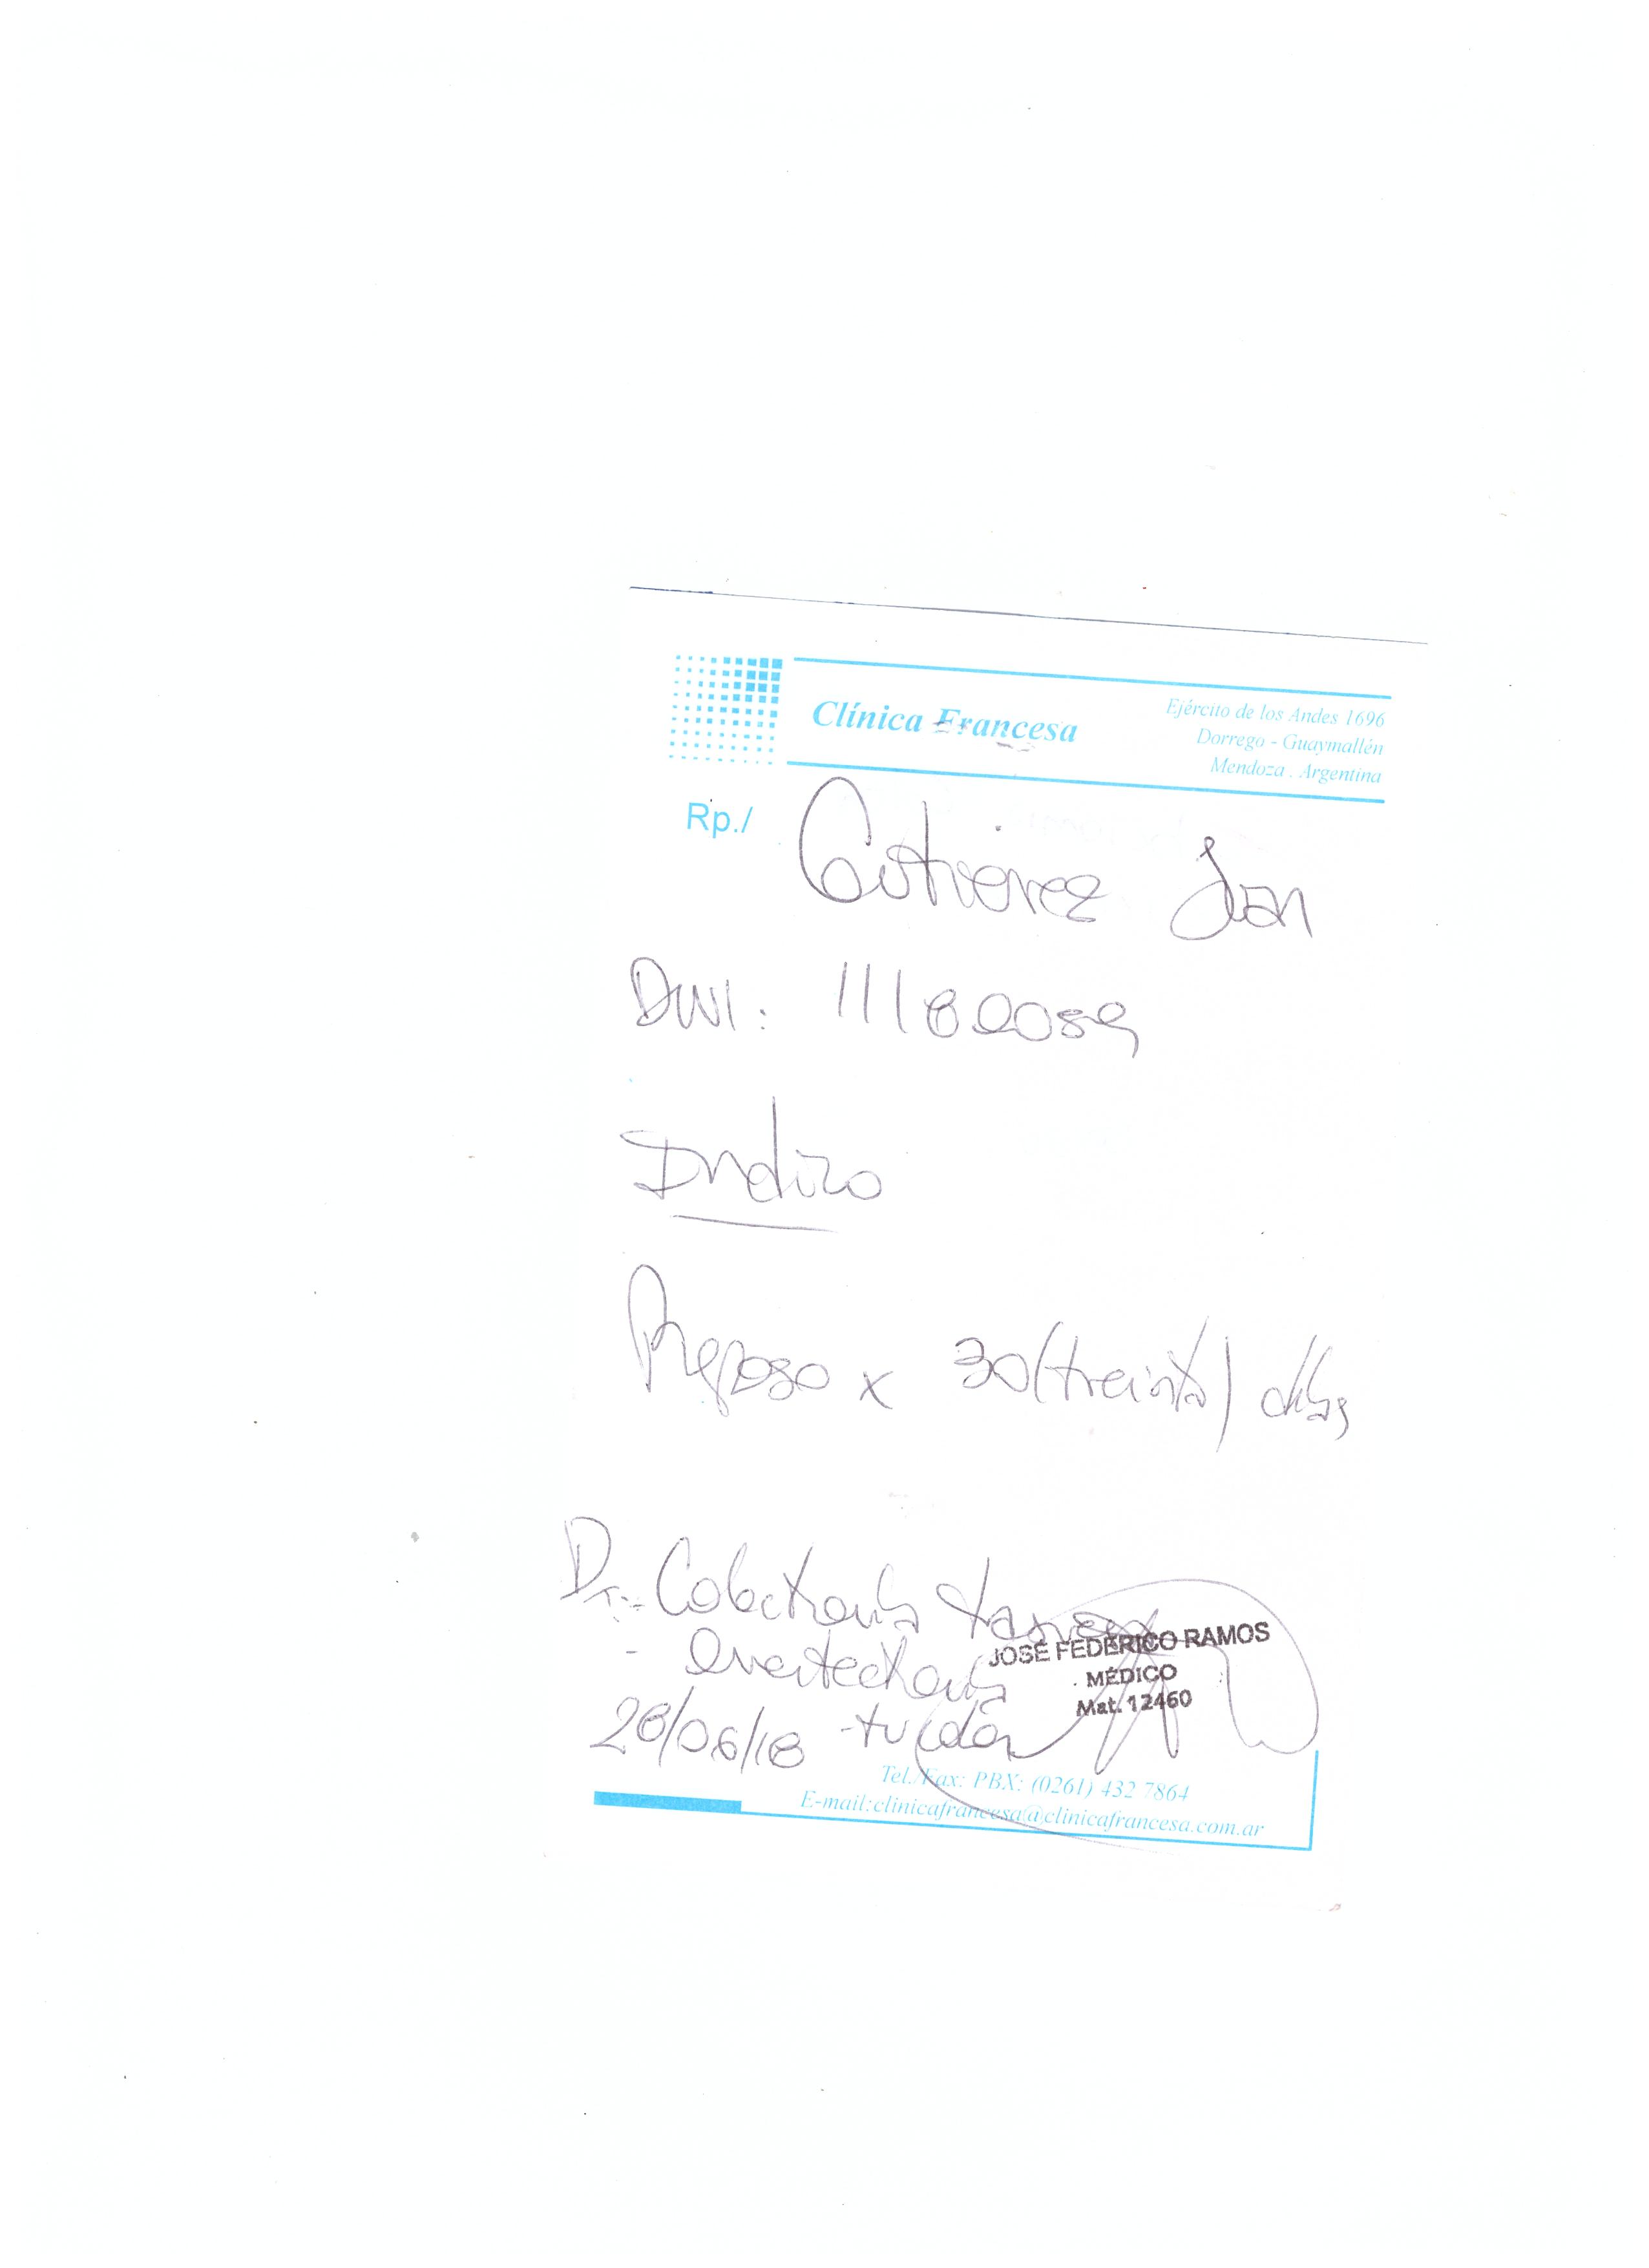 Clínica Francesa
Ejército de los Andes 1696
Dorrego - Guaymallén
Mendoza . Argentina
Rp./
Gutierrez Juan
DNI: 11180059
Indico
Reposo x 30 (treinta) dias
Dx:
28/06/18
JOSÉ FEDERICO RAMOS
MÉDICO
Mat. 12460
Tel./Fax: PBX: (0261) 432 7864
E-mail:clinicafrancesa@clinicafrancesa.com.ar